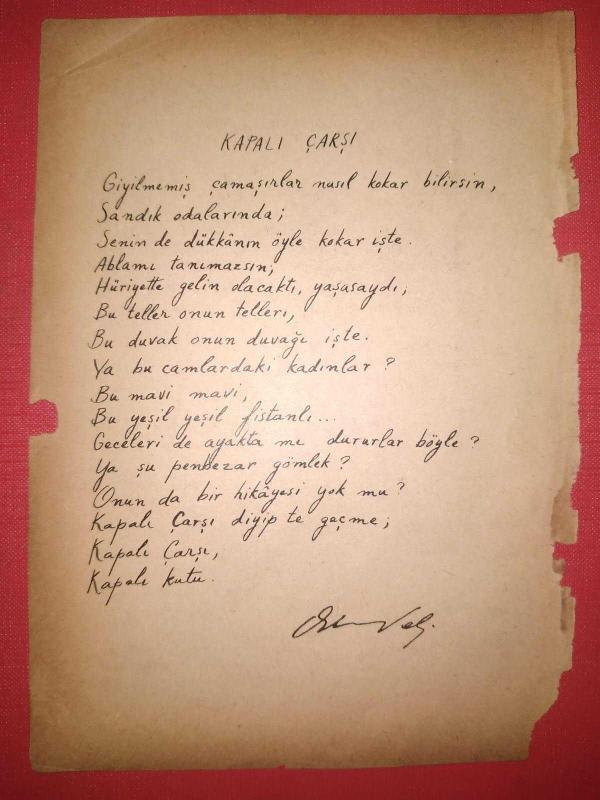 KAPALI ÇARŞI
Giyilmemiş çamaşırlar nasıl kokar bilirsin,
Sandık odalarında;
Senin de dükkânın öyle kokar işte.
Ablamı tanımazsın,
Hüriyette gelin olacaktı, yaşasaydı;
Bu teller onun telleri,
Bu duvak onun duvağı işte.
Ya bu camlardaki kadınlar?
Bu mavi mavi,
Bu yeşil yeşil fistanlı...
Geceleri de ayakta mı dururlar böyle?
Ya şu penbezar gömlek?
Onun da bir hikâyesi yok mu?
Kapalı Çarşı diyip te geçme;
Kapalı Çarşı,
Kapalı kutu.
Orhan Veli